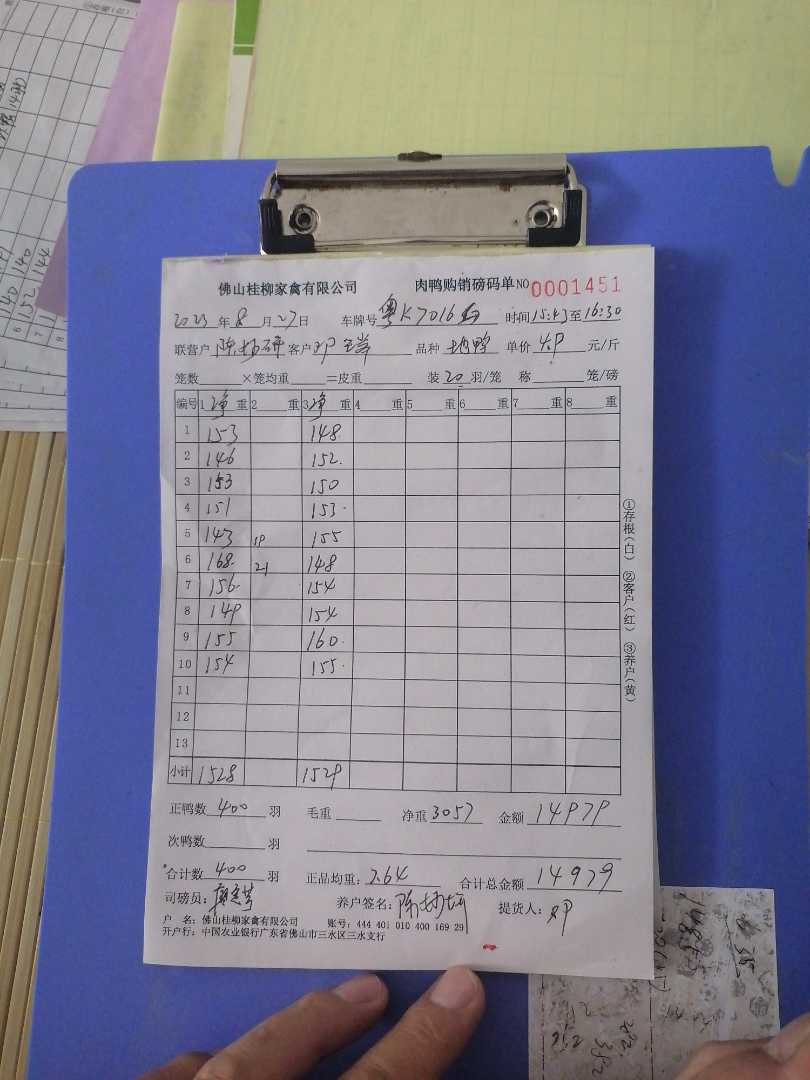 佛山桂柳家禽有限公司 肉鸭购销磅码单 NO 0001451
2023 年 8 月 27 日 车牌号 粤K7016 时间 15:43 至 16:30
联营户 客户 邓 品种 鸭 单价 元/斤
笼数 ×笼均重 =皮重 装 20 羽/笼 称 笼/磅
编号 1 净 重 2 重 3 净 重 4 重 5 重 6 重 7 重 8 重
1 153 148
2 146 152
3 153 150
4 151 153
5 143 19 155
6 168 21 148
7 156 154
8 149 154
9 155 160
10 154 155
11
12
13
小计 1528 1529
正鸭数 400 羽 毛重 净重 3057 金额 14979
次鸭数 羽
合计数 400 羽 正品均重: 7.64 合计总金额 14979
司磅员: 养户签名: 提货人: 邓
户 名: 佛山桂柳家禽有限公司 账号: 444 401 010 400 169 29
开户行: 中国农业银行广东省佛山市三水区三水支行
①存根(白) ②客户(红) ③养户(黄)
140 140
152 144